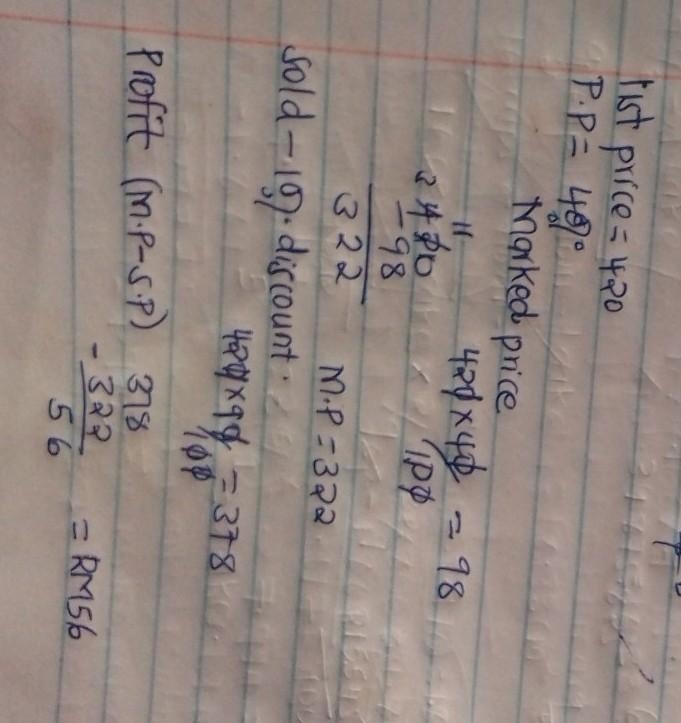 list price = 420
P.P = 40%
Marked price
420 × 40/100 = 98
420
- 98
322
M.P = 322
Sold - 10% discount.
420 × 90/100 = 378
Profit (M.P - S.P) 378
- 322
56 = RM56